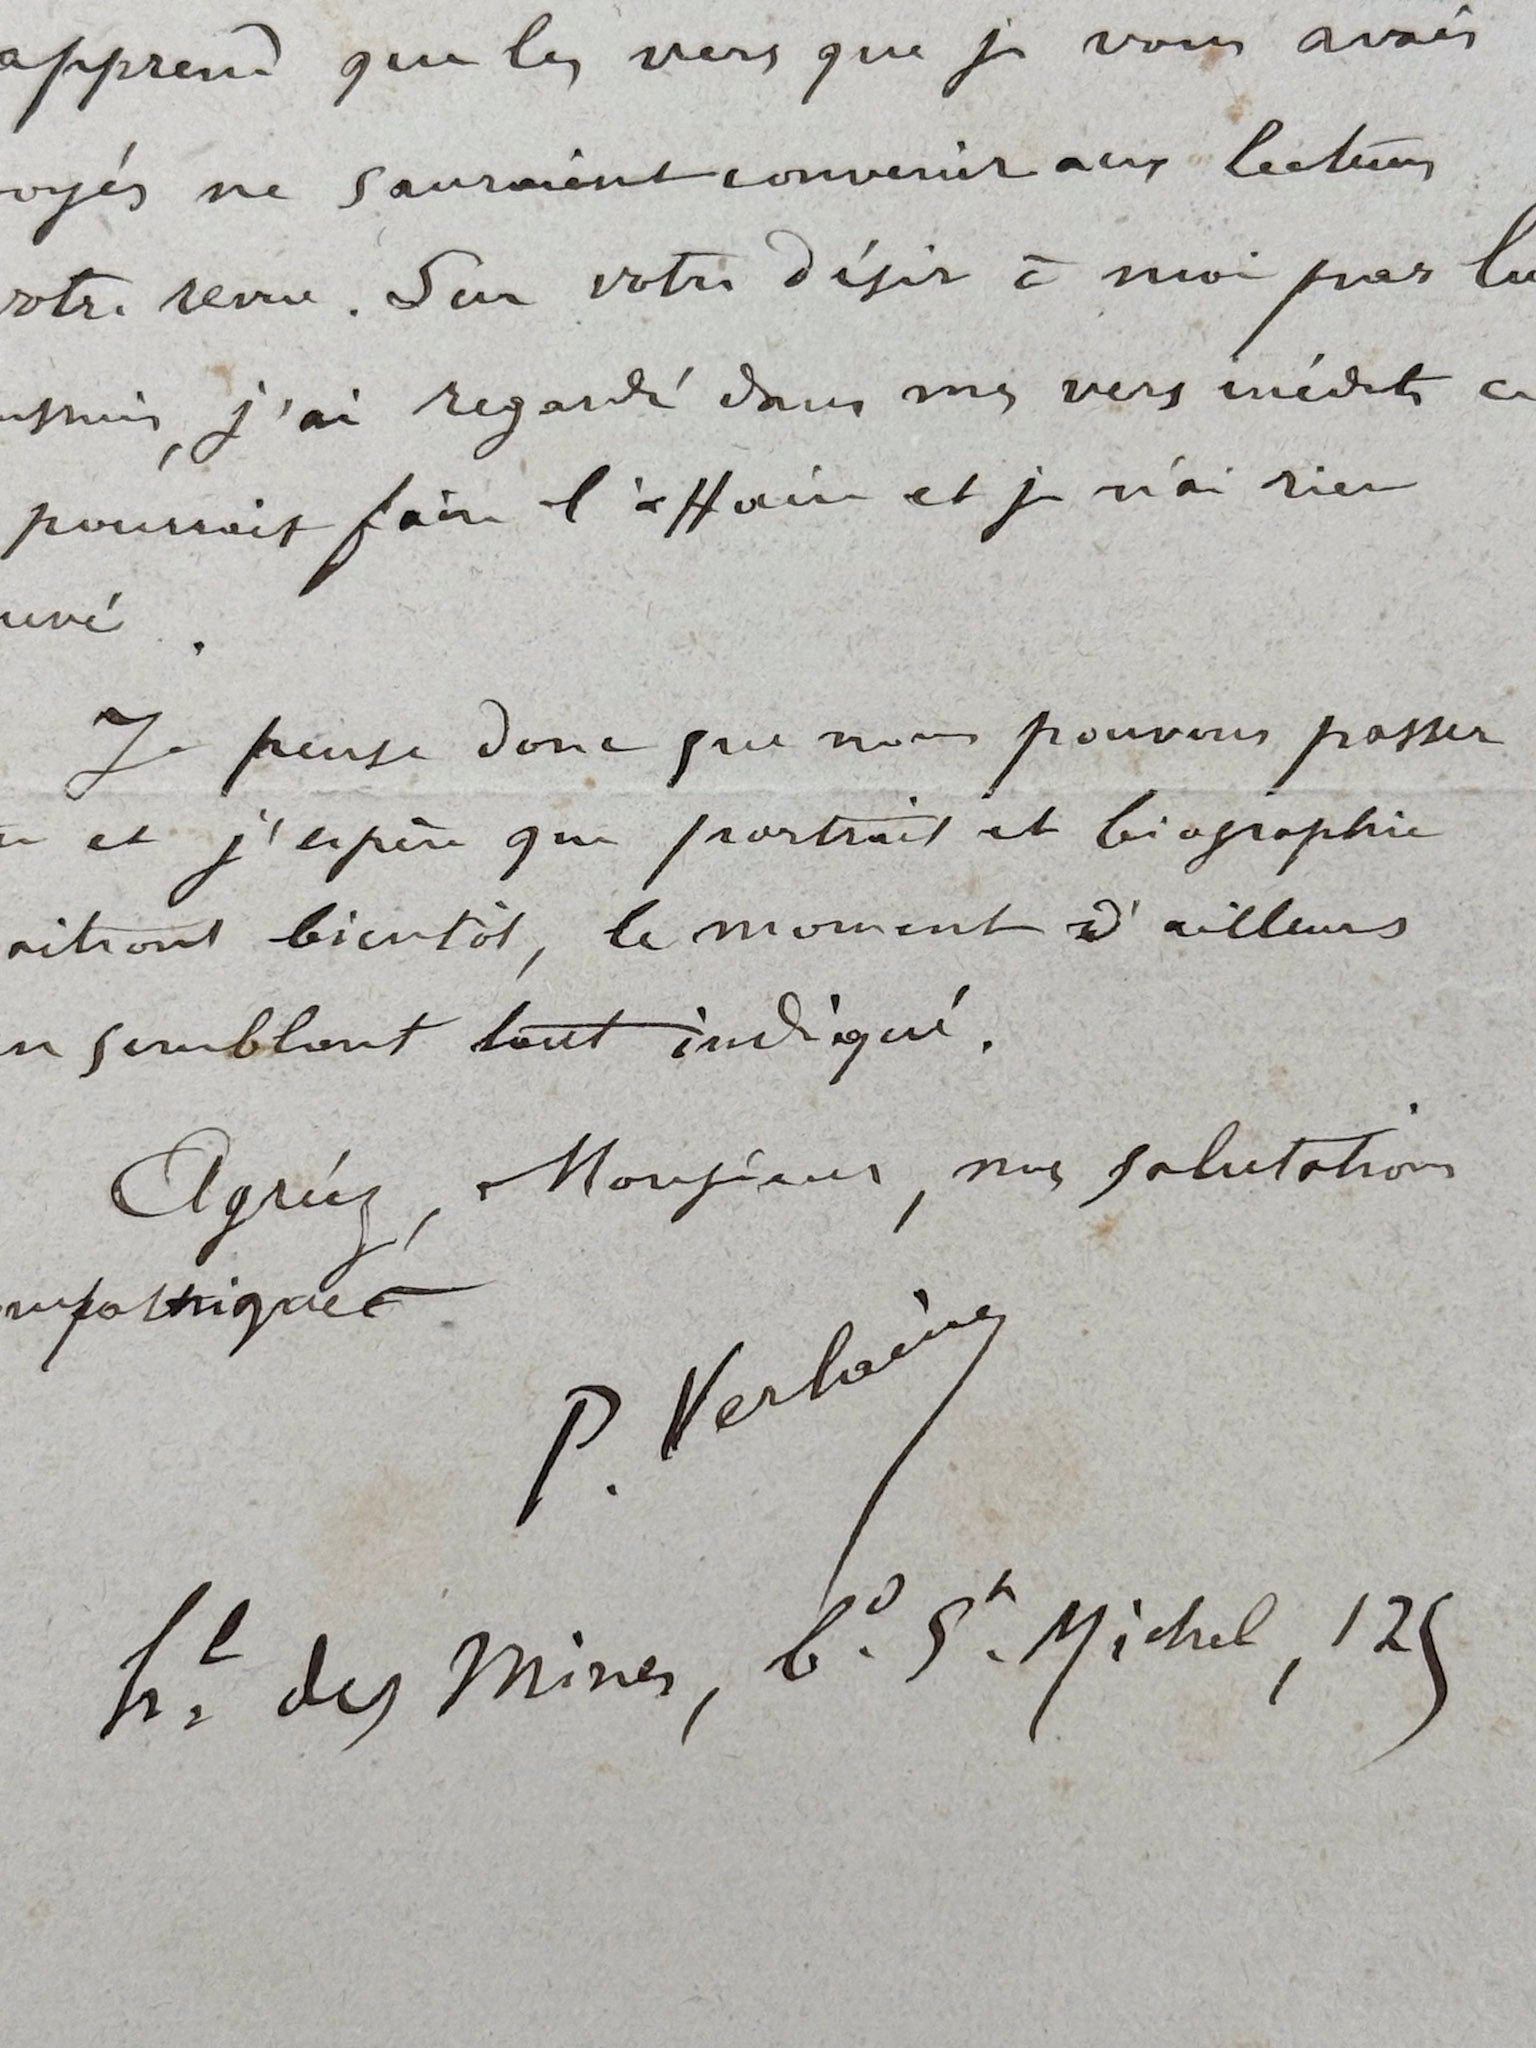 apprend que les vers que je vous avais
oyés ne sauraient convenir aux lecteurs
votre revue. Sur votre désir à moi par lu
j'ai regardé dans mes vers inédits ce
pourrait faire l'affaire et je n'ai rien
uvé.
Je pense donc que nous pouvons passer
et j'espère que portrait et biographie
aitront bientôt, le moment d'ailleurs
semblant tout indiqué.
Agréez, Monsieur, mes salutations
mpathiques
P. Verlaine
hl. des Mines, bd. St. Michel, 125